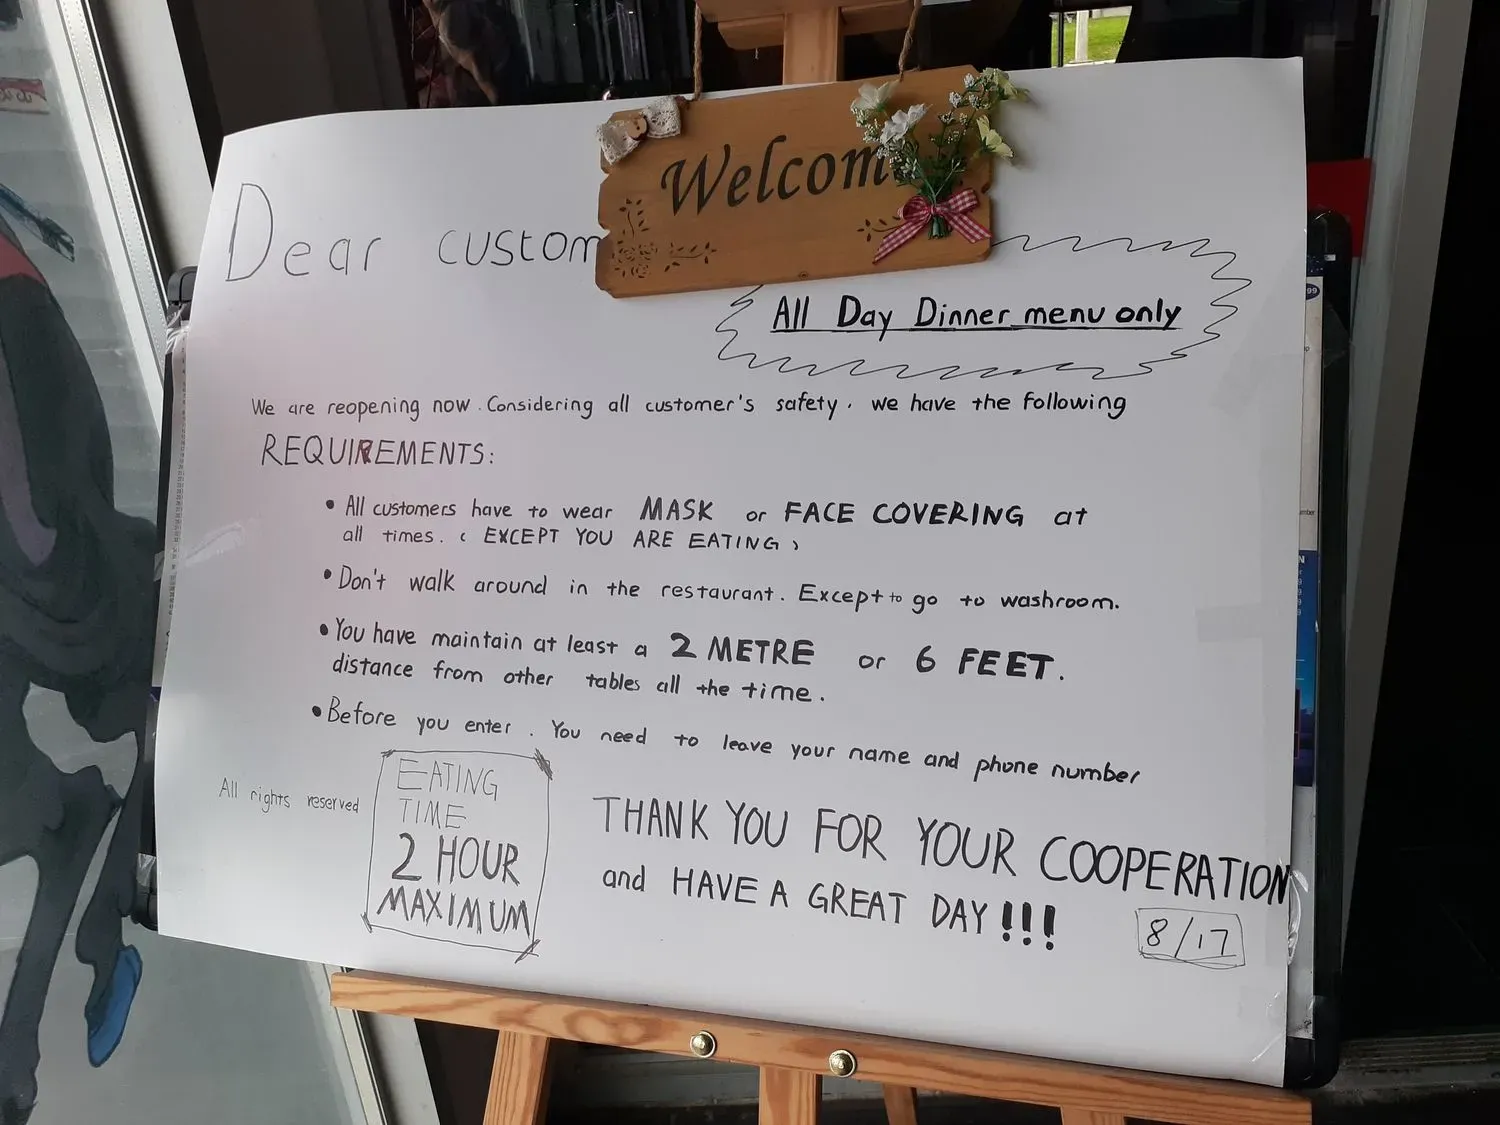 Welcom
Dear custom
All Day Dinner menu only
We are reopening now. Considering all customer's safety, we have the following
REQUIREMENTS:
• All customers have to wear MASK or FACE COVERING at
all times. ( EXCEPT YOU ARE EATING )
• Don't walk around in the restaurant. Except to go to washroom.
• You have maintain at least a 2 METRE or 6 FEET.
distance from other tables all the time.
• Before you enter. You need to leave your name and phone number
All rights reserved
EATING
TIME
2 HOUR
MAXIMUM
THANK YOU FOR YOUR COOPERATION
and HAVE A GREAT DAY!!!
8/17